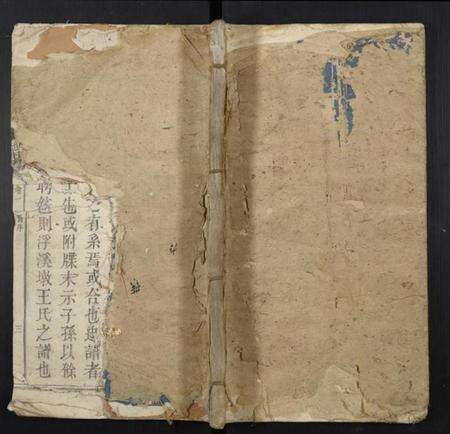 有系焉或合也建譜者
也或附牒末示子孫以緜
然則浮溪墩王氏之譜也
三